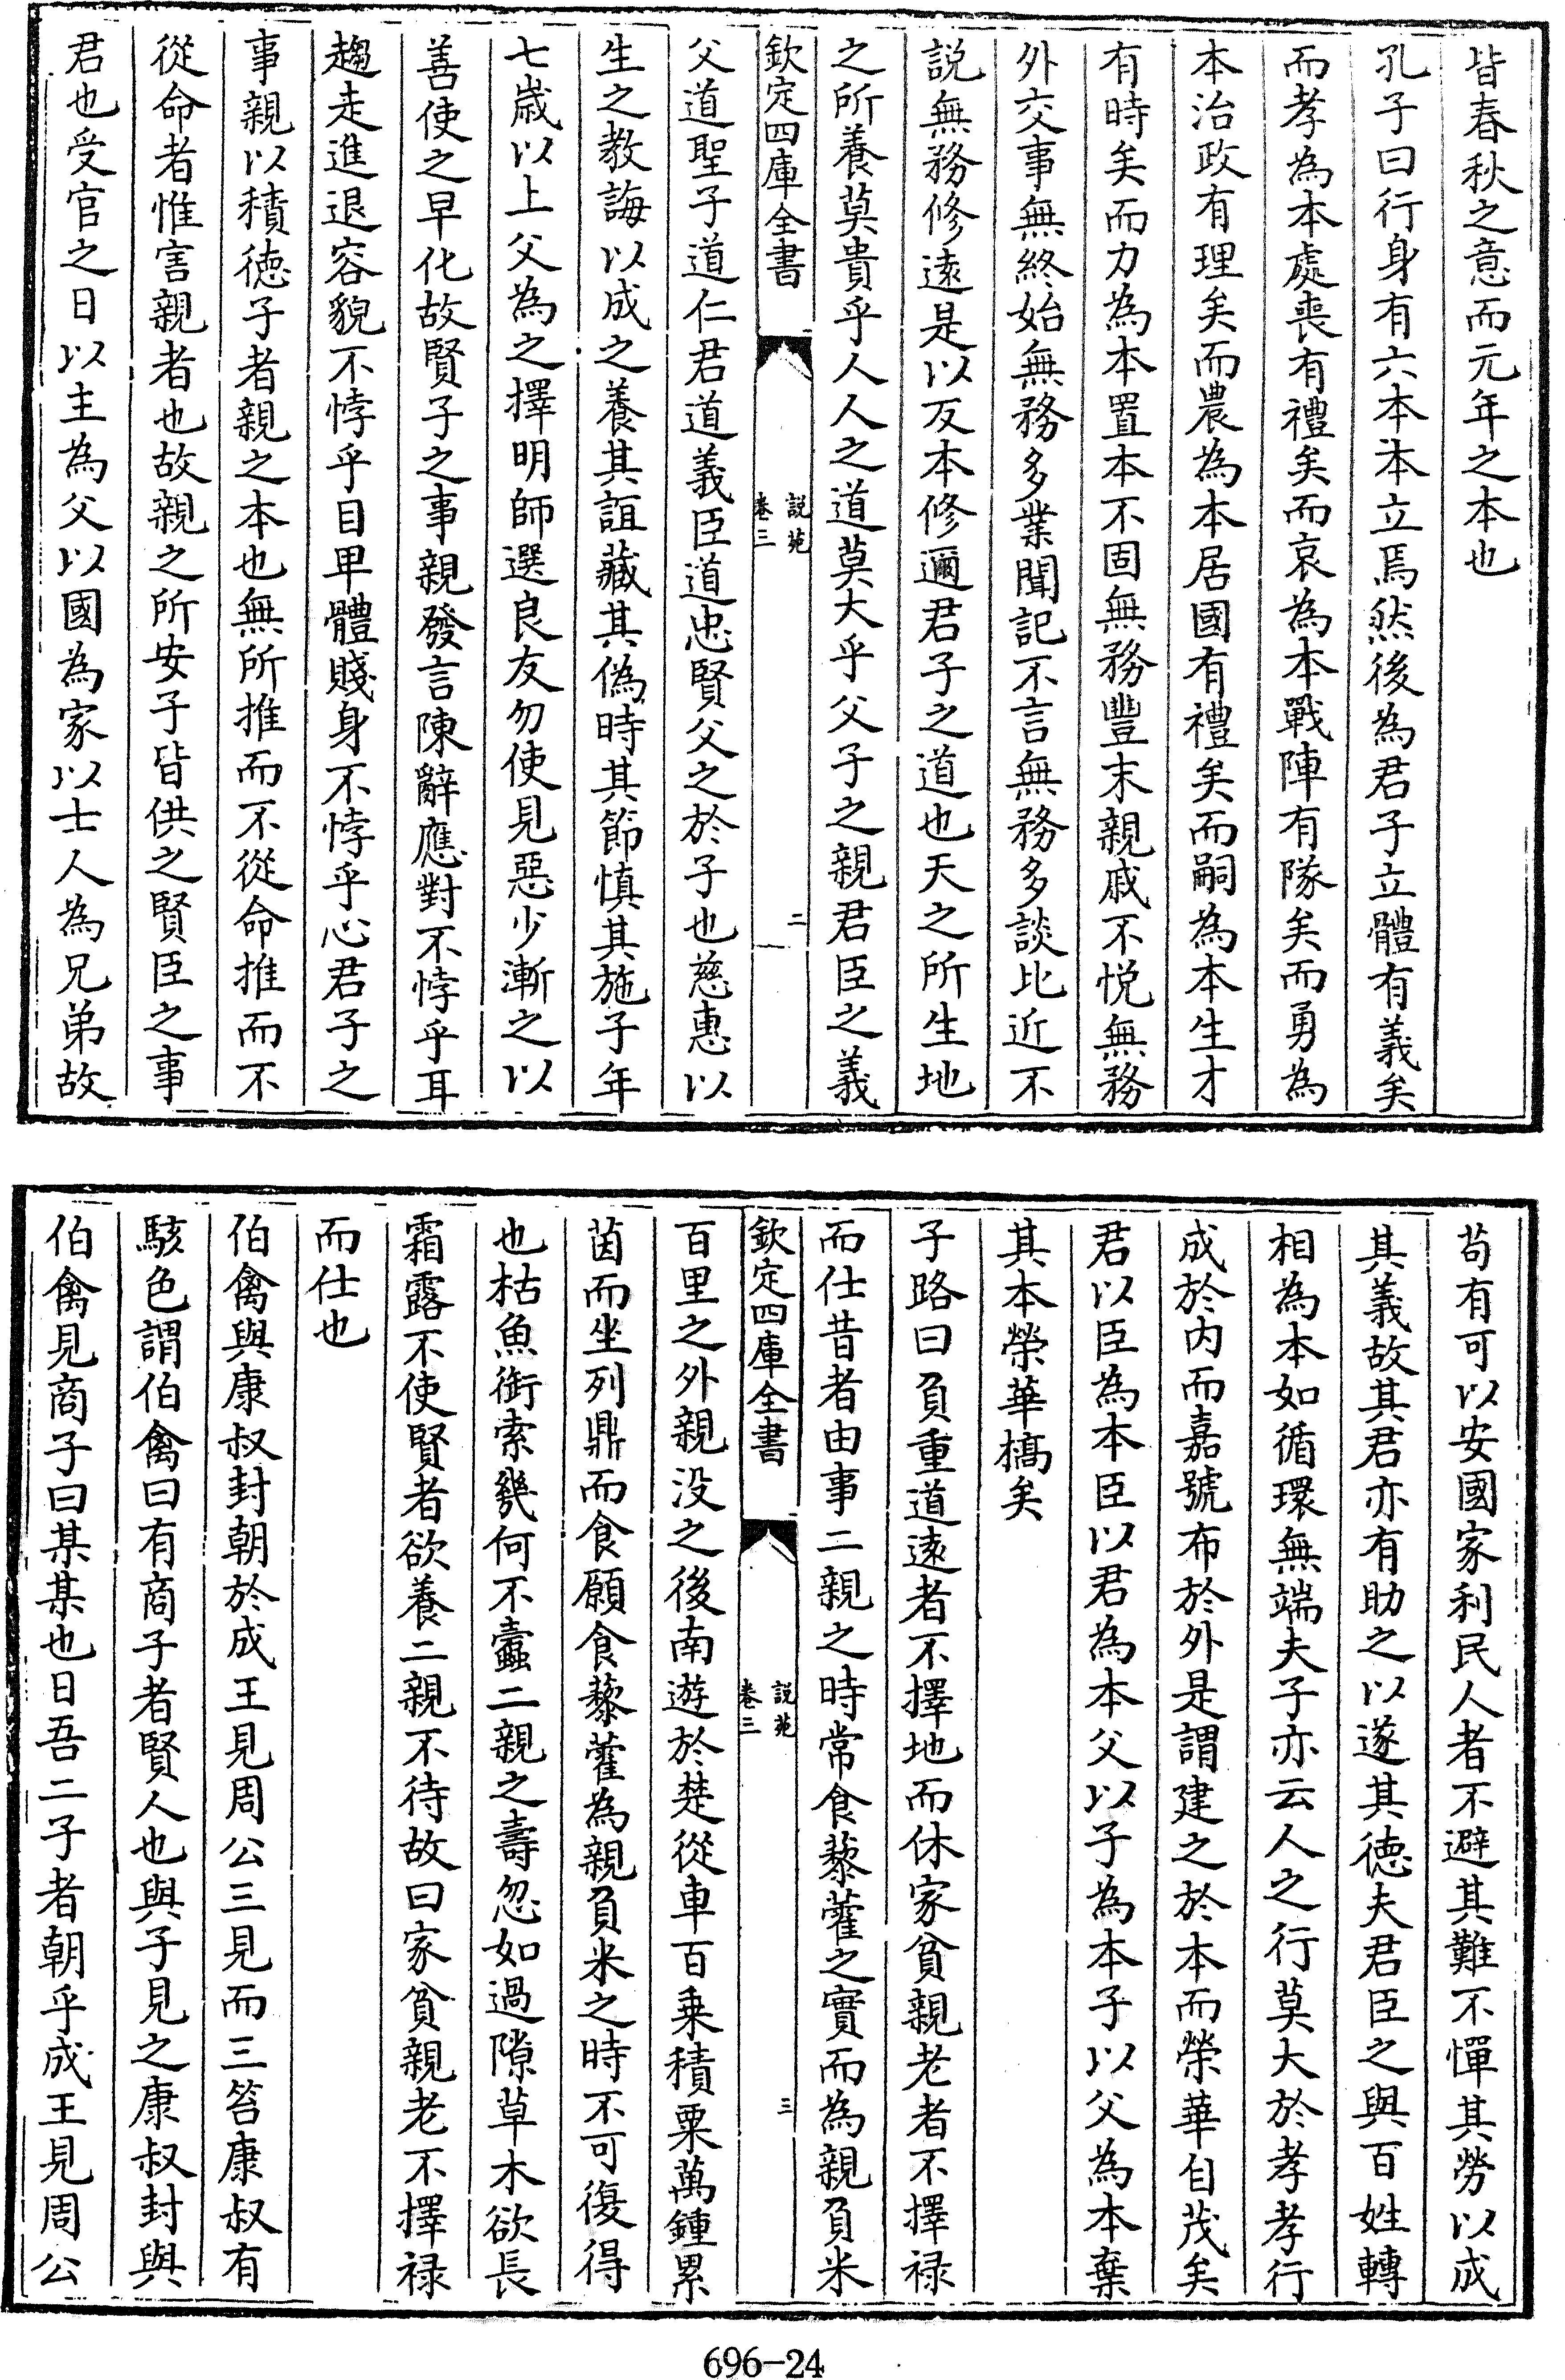 皆春秋之意而元年之本也
孔子曰行身有六本本立焉然後為君子立體有義矣
而孝為本處喪有禮矣而哀為本戰陣有隊矣而勇為
本治政有理矣而農為本居國有禮矣而嗣為本生才
有時矣而力為本置本不固無務豐末親戚不悅無務
外交事無終始無務多業聞記不言無務多談比近不
說無務修遠是以反本修邇君子之道也天之所生地
之所養莫貴乎人人之道莫大乎父子之親君臣之義
欽定四庫全書
說苑
卷三
二
父道聖子道仁君道義臣道忠賢父之於子也慈惠以
生之教誨以成之養其誼藏其偽時其節慎其施子年
七歲以上父為之擇明師選良友勿使見惡少漸之以
善使之早化故賢子之事親發言陳辭應對不悖乎耳
趨走進退容貌不悖乎目卑體賤身不悖乎心君子之
事親以積德子者親之本也無所推而不從命推而不
從命者惟害親者也故親之所安子皆供之賢臣之事
君也受官之日以主為父以國為家以士人為兄弟故
苟有可以安國家利民人者不避其難不憚其勞以成
其義故其君亦有助之以遂其德夫君臣之與百姓轉
相為本如循環無端夫子亦云人之行莫大於孝孝行
成於内而嘉號布於外是謂建之於本而榮華自茂矣
君以臣為本臣以君為本父以子為本子以父為本棄
其本榮華槁矣
子路曰負重道遠者不擇地而休家貧親老者不擇禄
而仕昔者由事二親之時常食藜藿之實而為親負米
欽定四庫全書
說苑
卷三
三
百里之外親没之後南遊於楚從車百乗積粟萬鍾累
茵而坐列鼎而食願食藜藿為親負米之時不可復得
也枯魚銜索幾何不蠹二親之壽忽如過隙草木欲長
霜露不使賢者欲養二親不待故曰家貧親老不擇禄
而仕也
伯禽與康叔封朝於成王見周公三見而三笞康叔有
駭色謂伯禽曰有商子者賢人也與子見之康叔封與
伯禽見商子曰某某也日吾二子者朝乎成王見周公
696-24